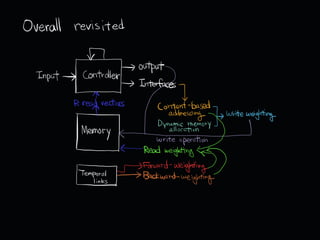 Overall revisited
output
Input
Controller
Interfaces
R read vectors
Content-based
addressing
Dynamic memory
allocation
Write weighting
Memory
write operation
Read weighting
Temporal
links
Forward-weighting
Backward-weighting